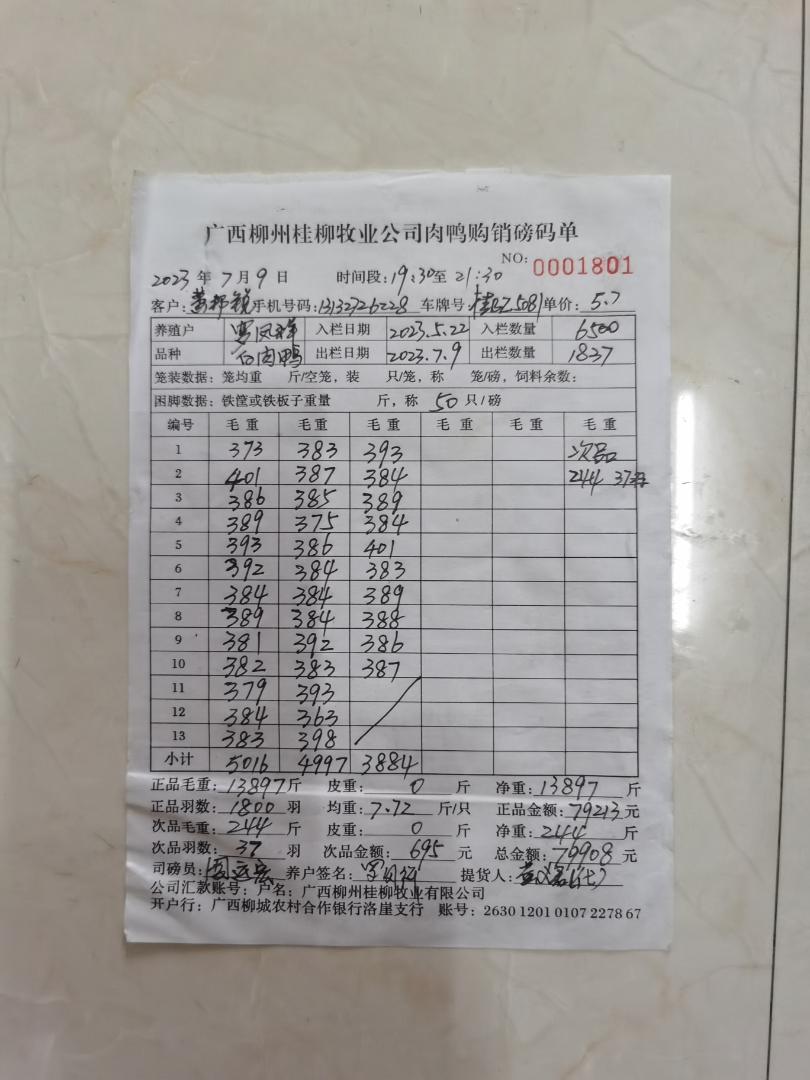 广西柳州桂柳牧业公司肉鸭购销磅码单
NO: 0001801
2023 年 7 月 9 日 时间段: 19:30 至 21:30
客户: 手机号码: 13132726228 车牌号: 5081 单价: 5.7
养殖户 凤祥 入栏日期 2023.5.22 入栏数量 6500
品种 白肉鸭 出栏日期 2023.7.9 出栏数量 1837
笼装数据: 笼均重 斤/空笼, 装 只/笼, 称 笼/磅, 饲料余数:
困脚数据: 铁筐或铁板子重量 斤, 称 50 只/磅
编号 毛重 毛重 毛重 毛重 毛重 毛重
1 373 383 393 次品
2 401 387 384 244 37羽
3 386 385 389
4 389 375 384
5 393 386 401
6 392 384 383
7 384 384 389
8 389 384 388
9 381 392 386
10 382 383 387
11 379 393
12 384 363
13 383 398
小计 5016 4997 3884
正品毛重: 13897 斤 皮重: 0 斤 净重: 13897 斤
正品羽数: 1800 羽 均重: 7.72 斤/只 正品金额: 79213 元
次品毛重: 244 斤 皮重: 0 斤 净重: 244 斤
次品羽数: 37 羽 次品金额: 695 元 总金额: 79908 元
司磅员: 养户签名: 提货人:
公司汇款账号: 户名: 广西柳州桂柳牧业有限公司
开户行: 广西柳城农村合作银行洛崖支行 账号: 2630 1201 0107 2278 67